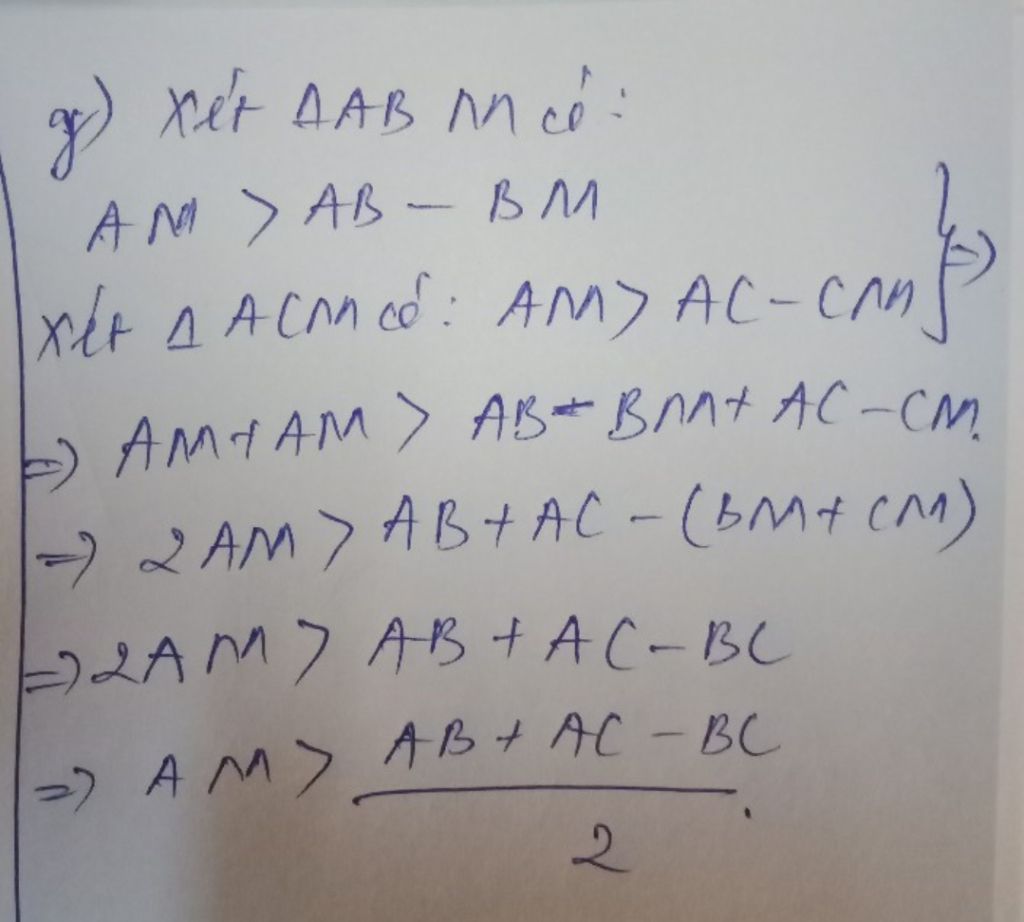 g) Xét ΔABM có:
AM > AB - BM
Xét ΔACM có: AM > AC - CM } =>
=> AM + AM > AB - BM + AC - CM.
=> 2AM > AB + AC - (BM + CM)
=> 2AM > AB + AC - BC
=> AM > AB + AC - BC
2.